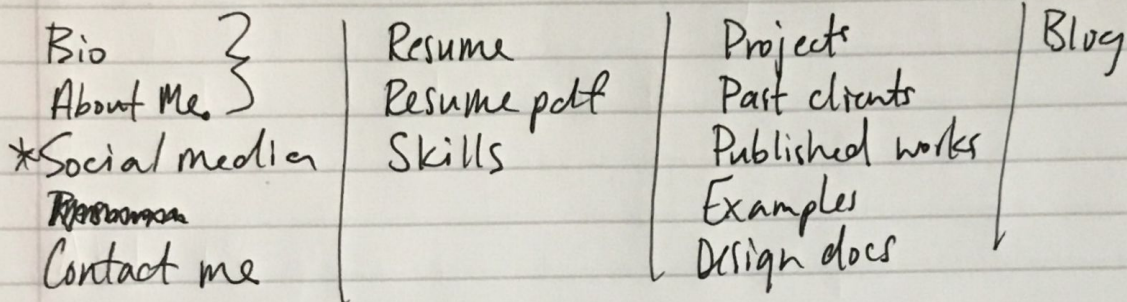 Bio
About Me.
*Social media
Contact me
Resume
Resume pdf
Skills
Projects
Past clients
Published works
Examples
Design docs
Blog